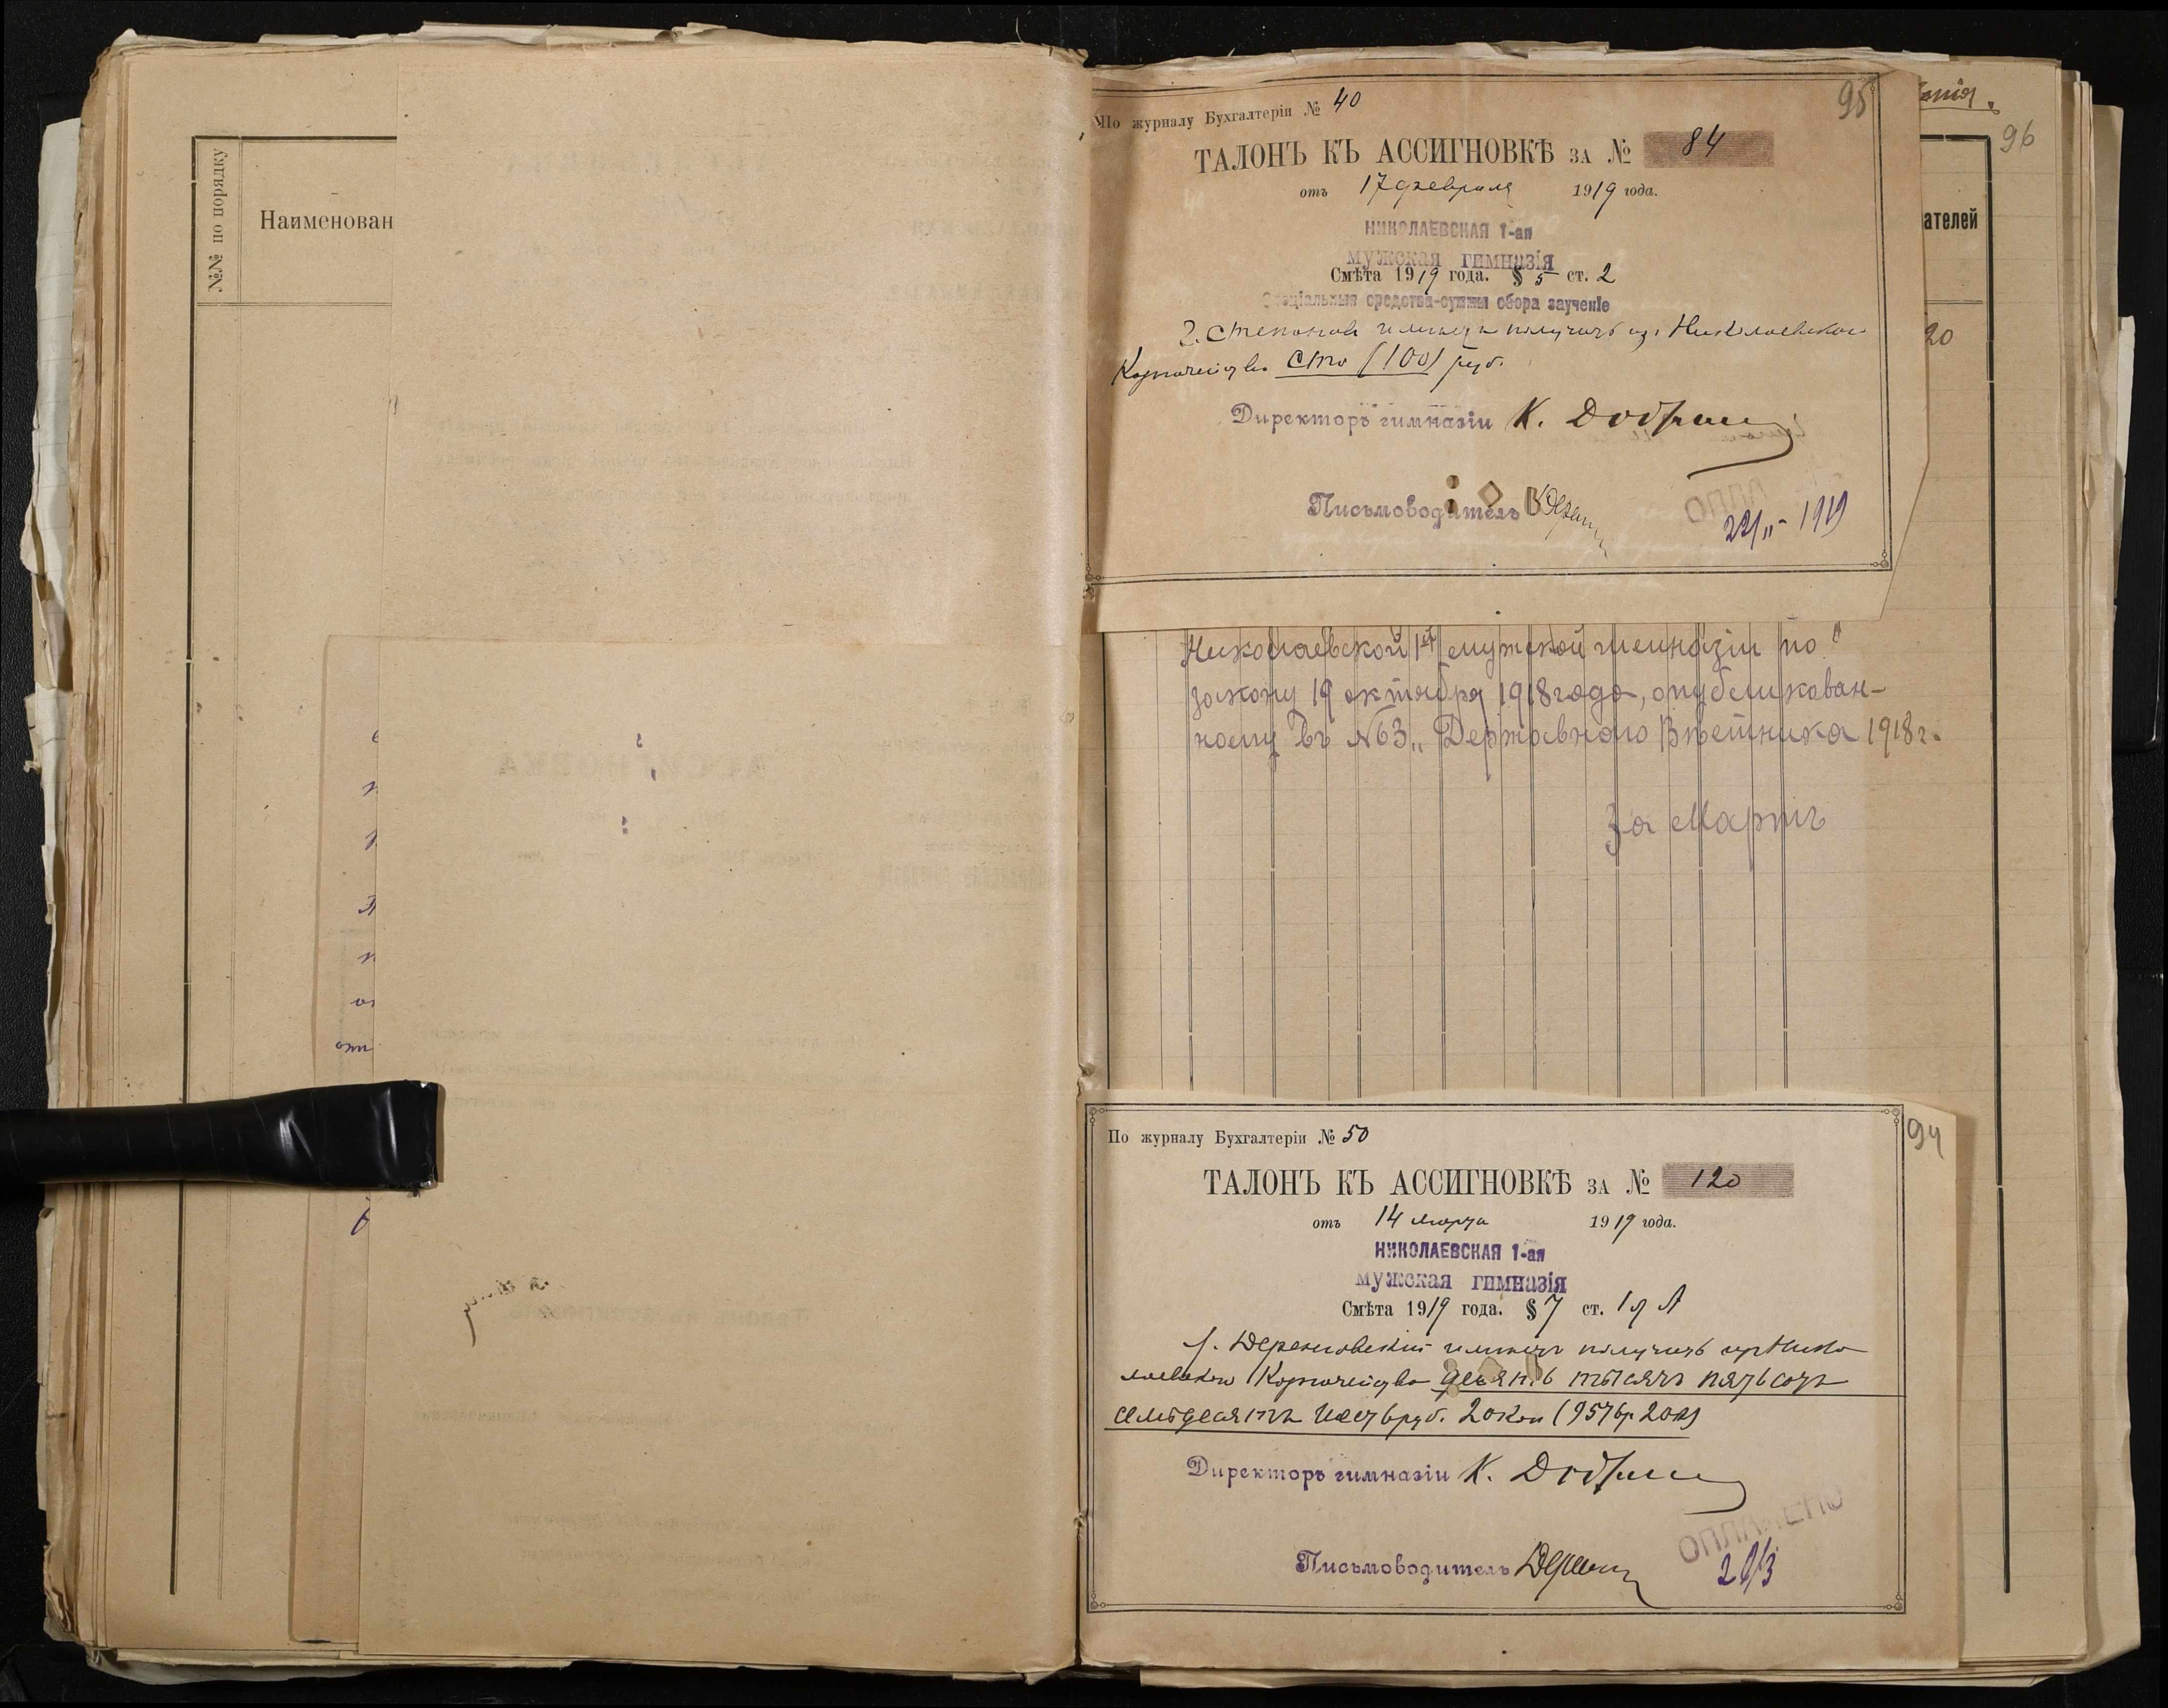 №№ по порядку
Наименован
95
По журналу Бухгалтеріи № 40
ТАЛОНЪ КЪ АССИГНОВКѢ ЗА № 84
отъ 17 февраля 1919 года.
НИКОЛАЕВСКАЯ 1-ая
мужская гимназія
Смѣта 1919 года. § 5 ст. 2
Спеціальныя средства-суммы сбора за ученіе
Г. Степановъ имѣетъ получить изъ Николаевскаго
Казначейства сто (100) руб.
Директоръ гимназіи К.
Письмоводитель
ОПЛА
22/II - 1919
96
ателей
20
Николаевской 1ой мужской гимназіи по
закону 19 октября 1918 года, опубликован-
ному въ №63 „Державнаго Вѣстника" 1918 г.
За Мартъ
94
По журналу Бухгалтеріи № 50
ТАЛОНЪ КЪ АССИГНОВКѢ ЗА № 120
отъ 14 марта 1919 года.
НИКОЛАЕВСКАЯ 1-ая
мужская гимназія
Смѣта 1919 года. § 7 ст. 1 л А
имѣетъ получить изъ Нико
лаевскаго Казначейства девять тысячъ пятьсотъ
семьдесятъ шесть руб. 20 коп (9576 р. 20 к)
Директоръ гимназіи К.
Письмоводитель
ОПЛАЧЕНО